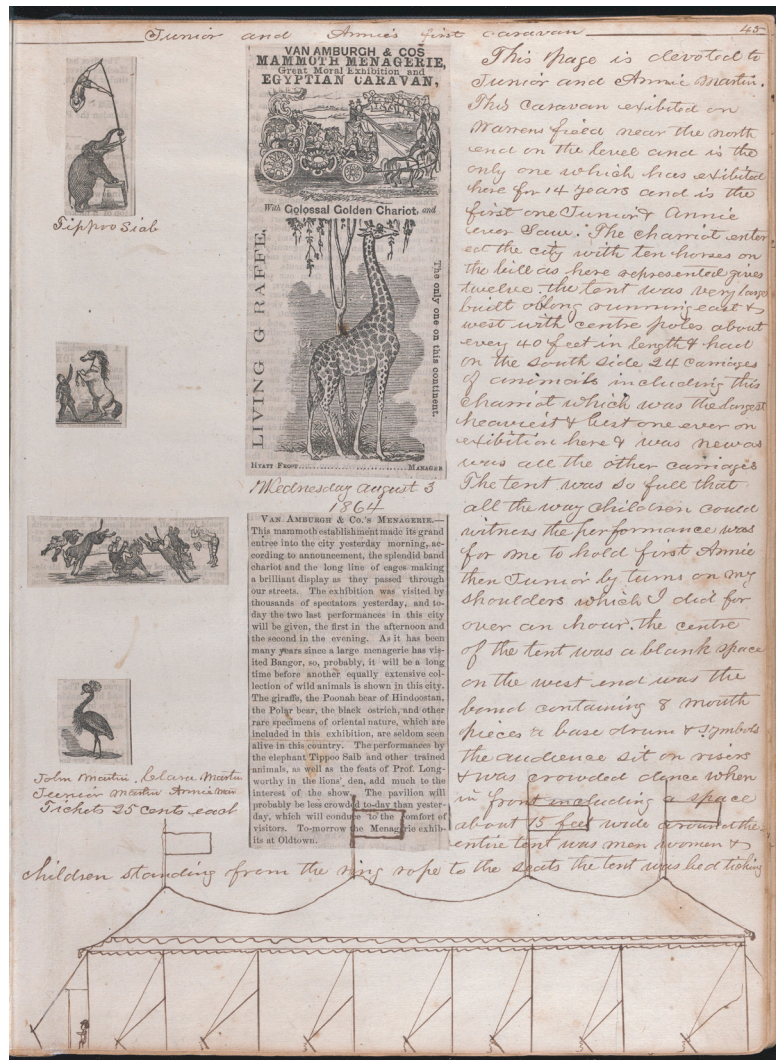 Junior and Annie's first caravan
45
Tippoo Siab
John Martin. Clara Martin
Junior Martin Annie
Tickets 25 cents each
VAN AMBURGH & COS
MAMMOTH MENAGERIE,
Great Moral Exhibition and
EGYPTIAN CARAVAN,
With Colossal Golden Chariot, and
LIVING GIRAFFE,
The only one on this continent.
HYATT FROST MANAGER
Wednesday august 3
1864
VAN AMBURGH & CO.'S MENAGERIE.—
This mammoth establishment made its grand
entree into the city yesterday morning, ac-
cording to announcement, the splendid band
chariot and the long line of cages making
a brilliant display as they passed through
our streets. The exhibition was visited by
thousands of spectators yesterday, and to-
day the two last performances in this city
will be given, the first in the afternoon and
the second in the evening. As it has been
many years since a large menagerie has vis-
ited Bangor, so, probably, it will be a long
time before another equally extensive col-
lection of wild animals is shown in this city.
The giraffe, the Poonah bear of Hindoostan,
the Polar bear, the black ostrich, and other
rare specimens of oriental nature, which are
included in this exhibition, are seldom seen
alive in this country. The performances by
the elephant Tippoo Saib and other trained
animals, as well as the feats of Prof. Long-
worthy in the lions' den, add much to the
interest of the show. The pavilion will
probably be less crowded to-day than yester-
day, which will conduce to the comfort of
visitors. To-morrow the Menagerie exhib-
its at Oldtown.
This page is devoted to
Junior and Annie Martin.
This Caravan exibited on
Warrens field near the north
end on the level and is the
only one which has exibited
here for 14 years and is the
first one Junior & Annie
ever Saw. The charriot enter
ed the city with ten horses on
the bill as here represented gives
twelve. the tent was very large
built oblong running east &
west with centre poles about
every 40 feet in length & had
on the south side 24 carriages
of animails including this
Charriot which was the largest
heaviest & best one ever on
exibition here & was new as
was all the other carriages
The tent was so full that
all the way children could
witness the performance was
for me to hold first Annie
then Junior by turns on my
shoulders which I did for
over an hour. the centre
of the tent was a blank space
on the west end was the
band containing 8 mouth
pieces a base drum & symbols
the audience sit on risers
& was crowded dence when
in front including a space
about 15 feet wide around the
entire tent was men women &
children standing from the ring rope to the seats the tent was bed ticking